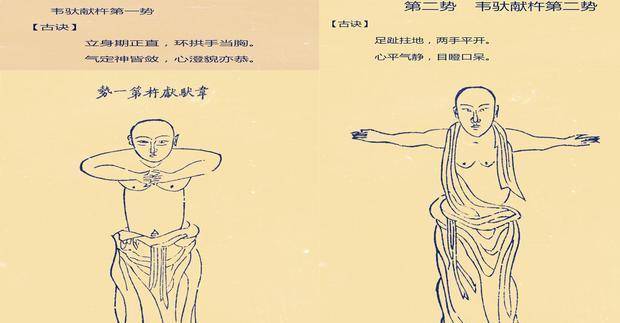 韦驮献杵第一势
【古诀】
立身期正直，环拱手当胸。
气定神皆敛，心澄貌亦恭。
勢一第杵獻馱韋
第二势 韦驮献杵第二势
【古诀】
足趾拄地，两手平开。
心平气静，目瞪口呆。